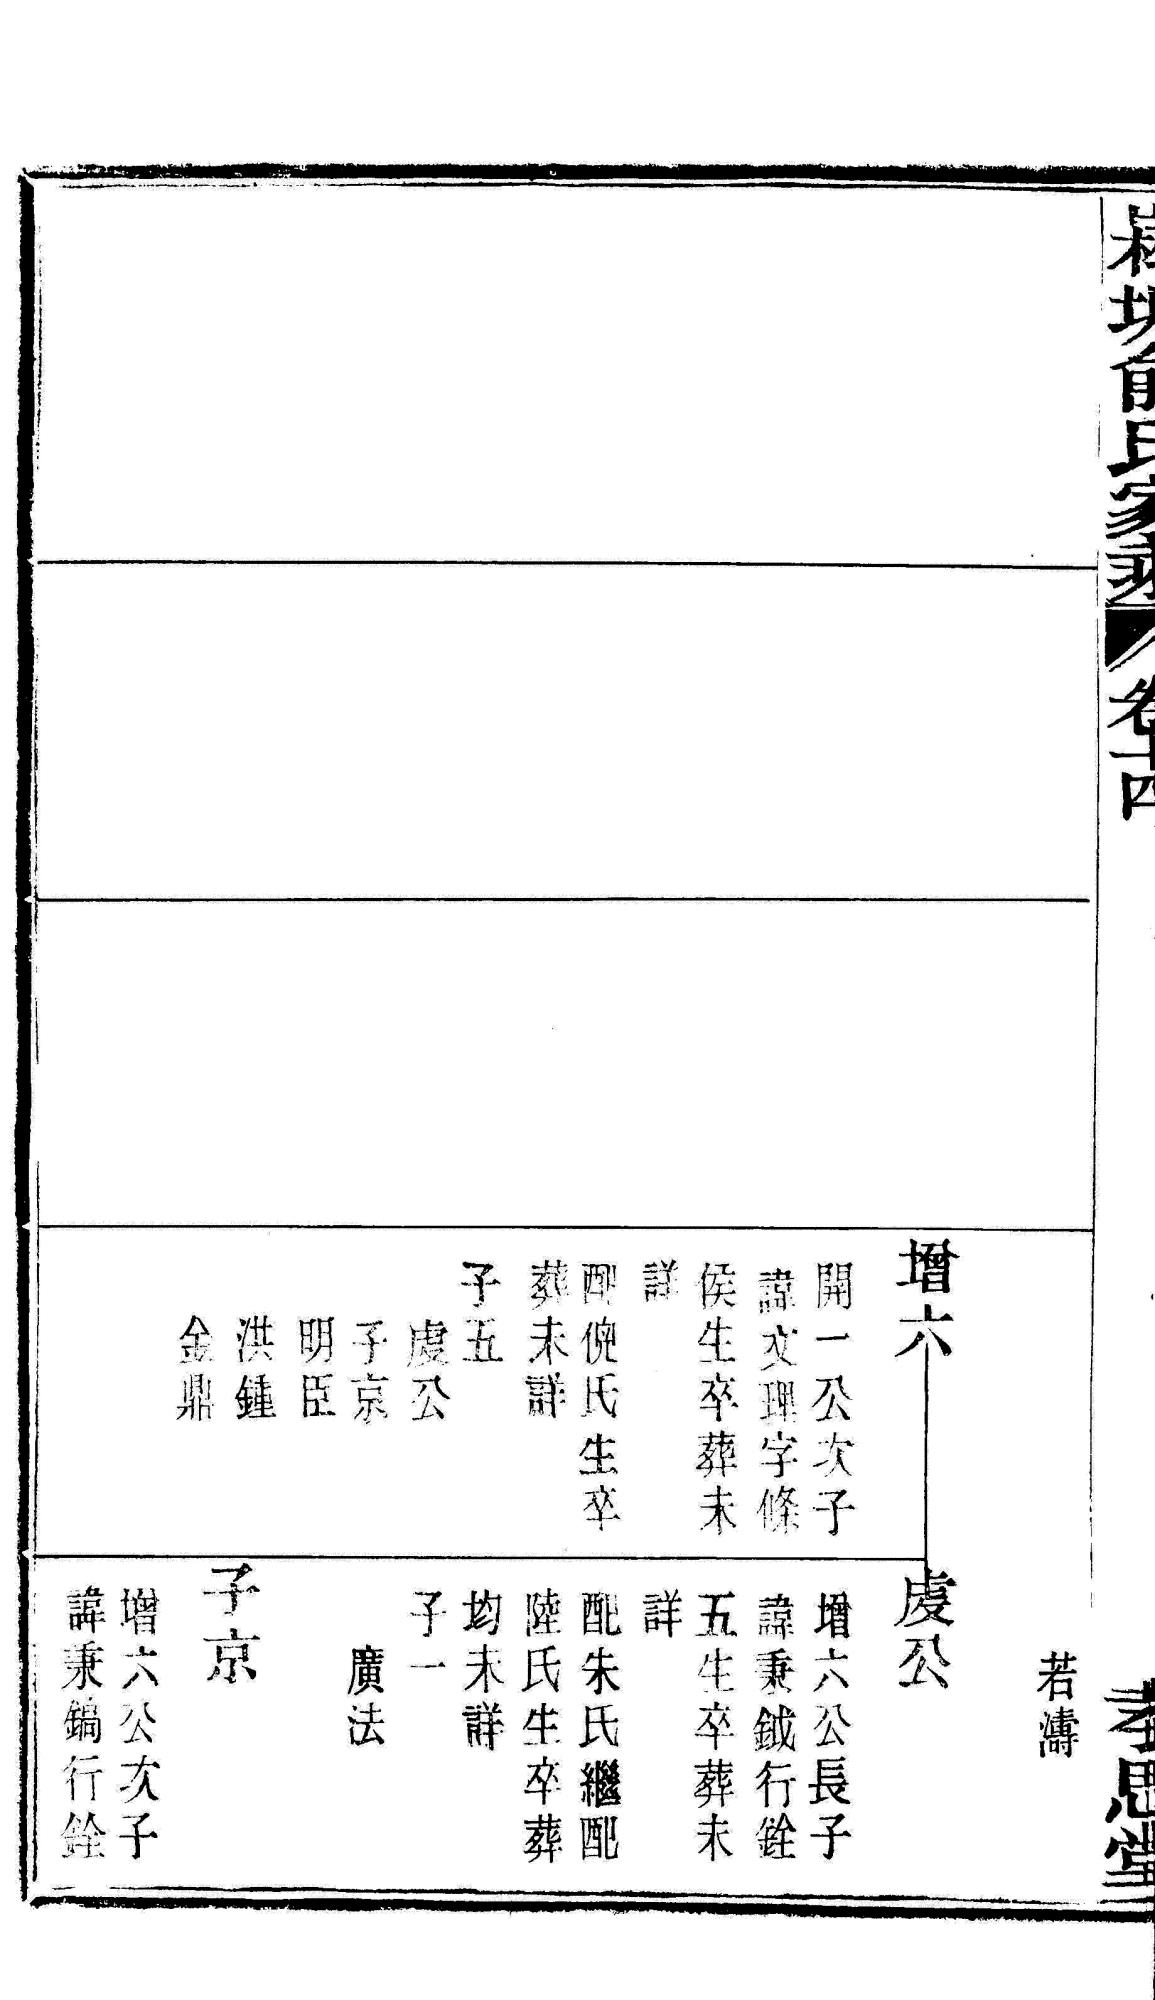 俞氏家乘
卷十四
孝思堂
若濤
增六
開一公次子
諱文理字條
侯生卒葬未
詳
配倪氏生卒
葬未詳
子五
虔公
子京
明臣
洪鍾
金鼎
虔公
增六公長子
諱秉鉞行銓
五生卒葬未
詳
配朱氏繼配
陸氏生卒葬
均未詳
子一
廣法
子京
增六公次子
諱秉鎬行銓